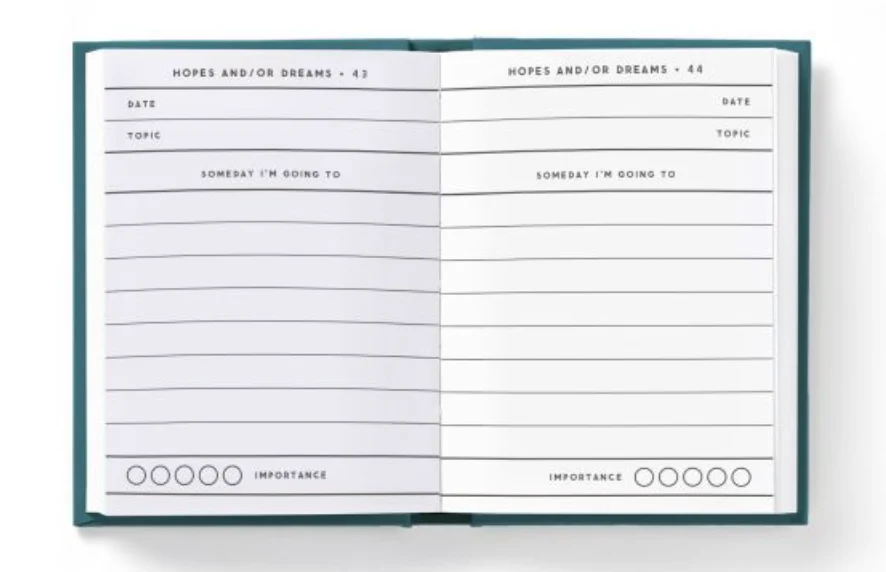 HOPES AND/OR DREAMS • 43
DATE
TOPIC
SOMEDAY I'M GOING TO
IMPORTANCE
HOPES AND/OR DREAMS • 44
DATE
TOPIC
SOMEDAY I'M GOING TO
IMPORTANCE